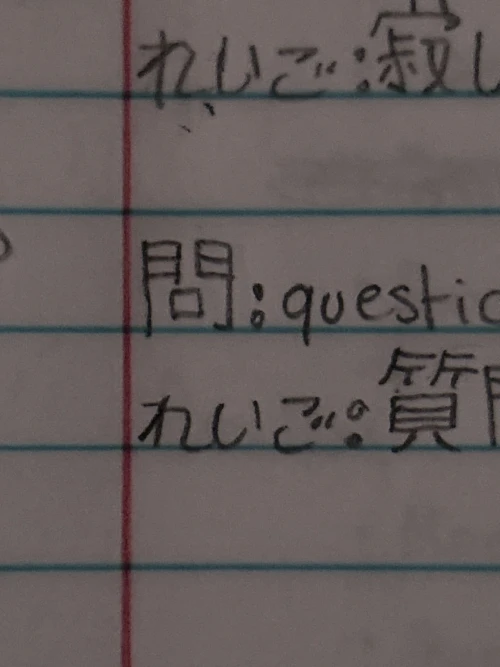 れいご:寂し
問:questio
れいご:質問